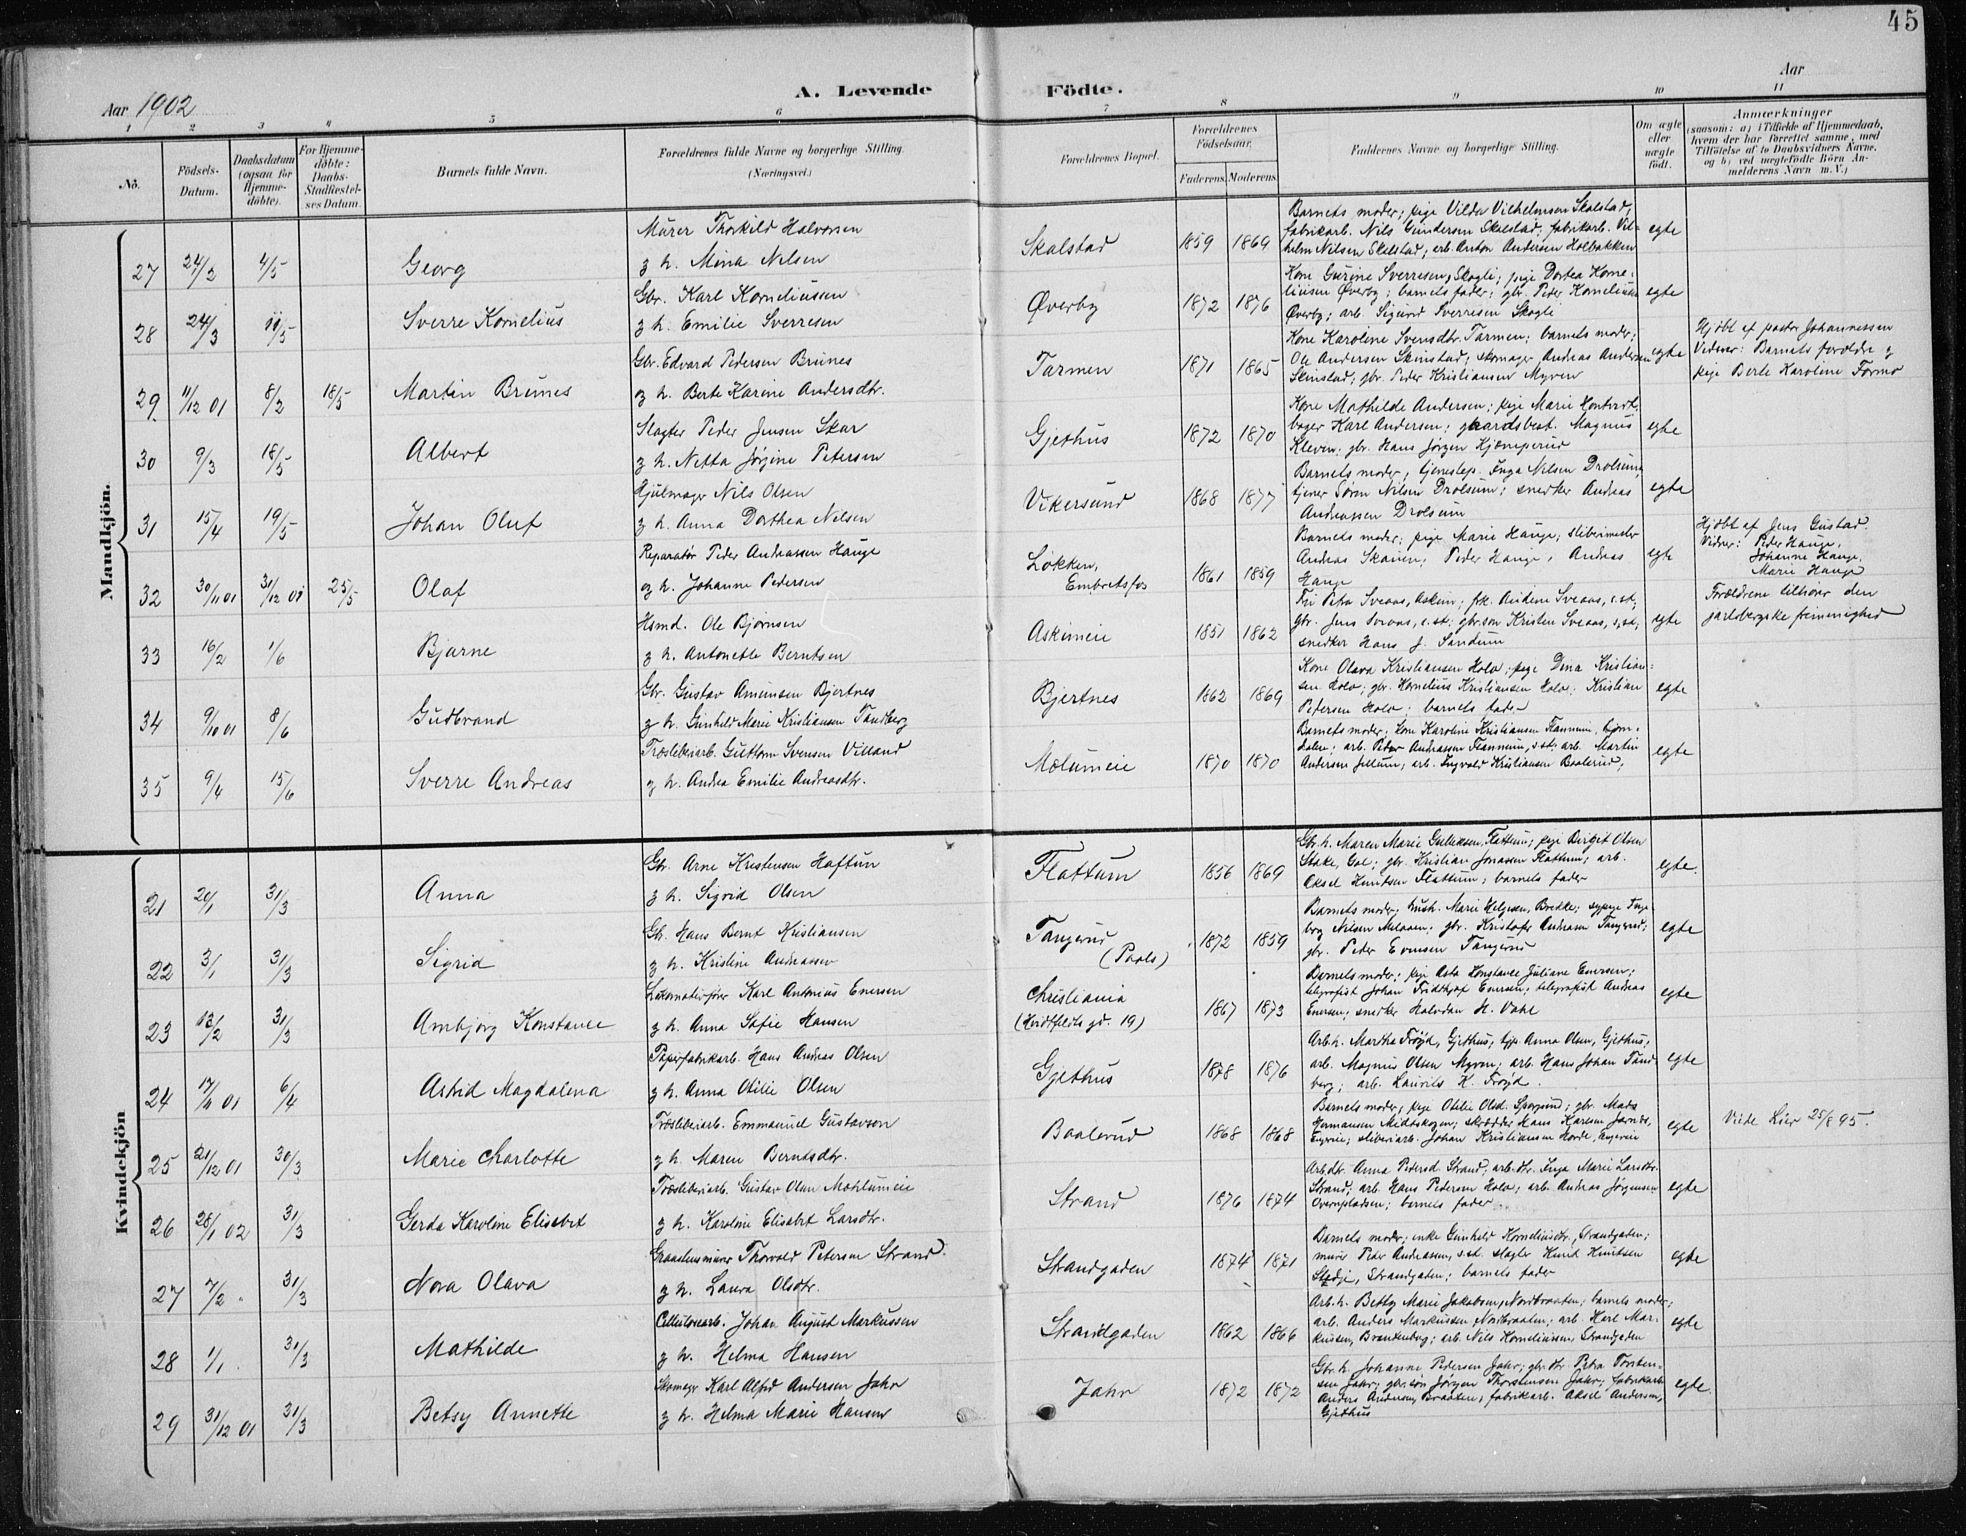 45
Aar 1902
A. Levende
Födte.
Aar
1 2 3 4 5 6 7 8 9 10 11
No.
Födsels-Datum.
Daabsdatum (ogsaa for Hjemme-döbte).
For Hjemme-döbte: Daabs-Stadfæstel-ses Datum.
Barnets fulde Navn.
Forældrenes fulde Navne og borgerlige Stilling. (Næringsvei.)
Forældrenes Bopæl.
Forældrenes Födselsaar.
Faderens. Moderens.
Faddernes Navne og borgerlige Stilling.
Om ægte eller uægte födt.
Anmærkninger
(saasom: a) i Tilfælde af Hjemmedaab,
hvem der har forrettet samme, med
Tilföielse af to Daabsvidners Navne,
og b) ved uægtefödte Börn An-
melderens Navn m. V.)
Mandkjön.
27 24/2 4/5 Georg
Murer Thorkild Halvorsen
g h. Mina Nilsen
Skalstad 1859 1869
Barnets moder; pige Vilda Vilhelmsen Skalstad,
fabrikarb. Nils Gundersen Skalstad; fabrikarb. Vil-
helm Nilsen Skalstad; arb. Anton Andersen Holbakken
egte
28 24/3 11/5 Sverre Kornelius
Gbr. Karl Korneliussen
g h. Emilie Sverresen
Øverby 1872 1876
Kone Gurine Sverresen, Skogli; pige Dortea Korne-
liusen Øverby; barnets fader; gbr. Peder Korneliusen
Øverby; arb. Sigurd Sverresen Skogli
egte
29 11/12 01 8/2 18/5 Martin Brunes
Gbr. Edvard Pedersen Brunes
og h. Berte Karine Andersdtr.
Tarmen 1871 1865
Kone Karoline Svendsdtr. Tarmen; barnets moder;
Ole Andersen Skinstad; skomager Andreas Andersen
Skinstad; gbr. Peder Kristiansen Myren
egte
Hjdbt af pastor Johannessen
Vidner: Barnets forældre og
pige Berte Karoline Formo
30 9/3 18/5 Albert
Slagter Peder Jensen Skar
g h. Netta Jørgine Petersen
Gjethus 1872 1870
Kone Mathilde Andersen; pige Marie
bager Karl Andersen; gaardsbest. Magnus
Kleven; gbr. Hans Jørgen Hjemperud
egte
31 15/4 19/5 Johan Oluf
Hjulmager Nils Olsen
g h. Anna Dorthea Nilsen
Vikersund 1868 1877
Barnets moder; tjenestep. Inga Nilsen Drolsum,
tjener Søren Nilsen Drolsum; snedker Andreas
Andreassen Drolsum
egte
32 30/11 01 31/12 01 25/5 Olaf
Reparatør Peder Andreassen Hauge
og h. Johanne Pedersen
Løkken, Embretsfos 1861 1859
Barnets moder; pige Marie Hauge; slibermester
Andreas Skauen; Peder Hauge; Andreas
Hauge
egte
Hjdbt af Jens Gustad.
Vidner: Peder Hauge,
Johanne Hauge,
Marie Hauge
33 16/2 1/6 Bjarne
Hsmd. Ole Bjørnsen
g h. Antonette Berntsen
Askimeie 1851 1862
Petra Sveaas, Askim; frk. Andrine Sveaas, s.st;
gbr. Jens Sveaas, s.st; gbr.søn Kristen Sveaas, s.st;
snedker Hans J. Sandum
egte
Forældrene tilhører den
jarlsbergske frimenighed
34 9/10 01 8/6 Gudbrand
Gbr. Gustav Amundsen Bjertnes
g h. Gunhild Marie Kristiansen Tandberg
Bjertnes 1862 1869
Kone Olava Kristiansen Holo; pige Dina Kristian-
sen Holo; gbr. Kornelius Kristiansen Holo; Kristian
Pedersen Holo; barnets fader
egte
35 9/4 15/6 Sverre Andreas
Træsliberiarb. Guttorm Svensen Villand
g h. Andrea Emilie Andreasdtr.
Mælumeie 1870 1870
Barnets moder; kone Karoline Kristiansen Flannum,
arb. Peter Andreassen Flannum, s.st; arb. Martin
Andersen Jellum; arb. Ingvald Kristiansen Baalerud;
egte
Kvindekjön
21 20/1 31/3 Anna
Gbr. Arne Kristensen Haftun
g h. Sigrid Olsen
Flattum 1856 1869
Gbr.h. Maren Marie Gulliksen, Flattum; pige Birgit Olsen
Stake, Gol; gbr. Kristian Jonassen Flattum; arb.
Aksel Knutsen Flattum; barnets fader
egte.
22 3/1 31/3 Sigrid
Gbr. Hans Bernt Kristiansen
g h. Kristine Andreassen
Tangerud (Paals) 1872 1859
Barnets moder; hush. Marie Helgesen, Bredke; sypige Inge-
borg Nilsen Meloaen; gbr. Kristofer Andreasen Tangerud;
gbr. Peder Evensen Tangerud
egte
23 13/2 31/3 Arnbjørg Konstance
Lokomotivfører Karl Antonius Enersen
g h. Anna Sofie Hansen
Christiania (Hvidtfeldts gd. 19) 1867 1873
Barnets moder; pige Asta Konstance Juliane Enersen;
telegrafist Johan Fridthjof Enersen, telegrafist Andreas
Enersen; snedker Halvdan H. Vahl
egte
24 17/11 01 6/4 Astrid Magdalena
Papirfabrikarb. Hans Andreas Olsen
g h. Anna Otilie Olsen
Gjethus 1878 1876
Arb.h. Martha Frøyd, Gjethus; tjp. Anna Olsen, Gjethus;
arb. Magnus Olsen Myren; arb. Hans Johan Tand-
berg; arb. Laurits K. Frøyd.
egte
25 21/12 01 30/3 Marie Charlotte
Træsliberiarb. Emmanuel Gustavson
g h. Maren Berntsdtr.
Baalerud 1868 1868
Barnets moder; pige Otelie Olsd. Sporsund; gbr. Mads
Hermansen Midtskogen; skrædder Hans Karlsen
sliberiarb. Johan Kristiansen Horde,
egte
Viede Lier 25/8 95.
26 28/1 02 31/3 Gerda Karoline Elisabet
Træsliberiarb. Gustav Olsen Mohlumeie
g h. Karoline Elisabet Larsdtr.
Strand 1876 1874
Arb.dtr. Anna Pedersd. Strand; arb.dtr. Inga Marie Larsdtr.
Strand; arb. Hans Pedersen Holo; arb. Andreas Jørgensen
Overnpladsen; barnets fader
egte
27 7/2 " 31/3 Nora Olava
Graastensmurer Thorvald Petersen Strand.
g h. Laura Olsdtr.
Strandgaden 1874 1871
Barnets moder; enke Gunhild Korneliusdtr, Strandgaden;
murer Peder Andreassen, s.st. slagter Knut Knutsen
Stedje, Strandgaden; barnets fader
egte
28 1/1 . 31/3 Mathilde
Cellulosearb. Johan August Markussen
g h. Helma Hansen
Strandgaden 1862 1866
Arb.h. Betty Marie Jakobsen, Nordbraaten; barnets moder;
arb. Anders Markussen, Nordbraaten; arb. Karl Mar-
kussen, Brantenborg; arb. Nils Korneliussen, Strandgaden
egte
29 31/12 01 31/3 Betsy Annette
Skomager Karl Alfred Andersen Jahr
g h. Helma Marie Hansen
Jahr 1872 1872
Gbr.h. Johanne Pedersen Jahr; gbr.dtr. Petra Torsten-
sen Jahr; gbr.søn Jørgen Thorstensen Jahr; fabrikarb.
Anders Andersen, Braaten; fabrikarb. Aksel Andersen,
Gjethus
egte.